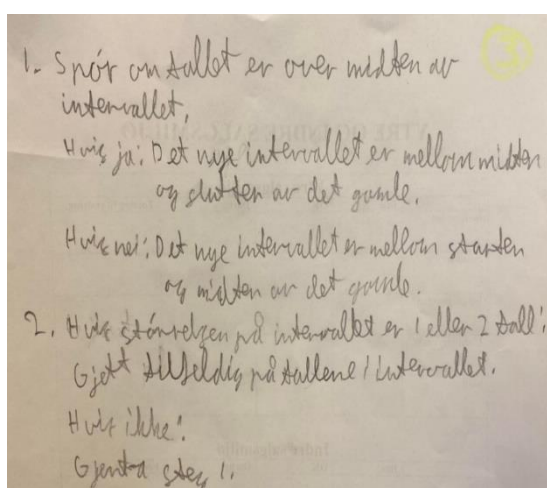 1. Spør om tallet er over midten av
intervallet,
Hvis ja: Det nye intervallet er mellom midten
og slutten av det gamle.
Hvis nei: Det nye intervallet er mellom starten
og midten av det gamle.
2. Hvis størrelsen på intervallet er 1 eller 2 tall:
Gjett tilfeldig på tallene i intervallet.
Hvis ikke:
Gjenta steg 1.
3